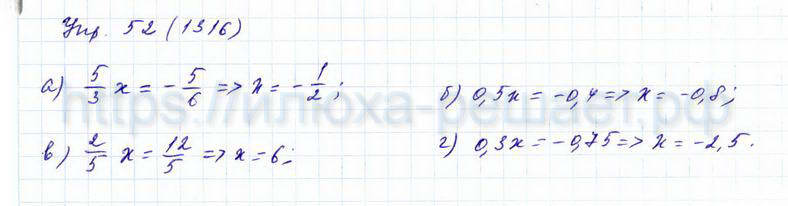 Упр. 52 (1316)
а) 5/3 x = - 5/6 => x = - 1/2;
б) 0,5x = -0,4 => x = -0,8;
в) 2/5 x = 12/5 => x = 6;
г) 0,3x = -0,75 => x = -2,5.
https://илюха-решает.рф